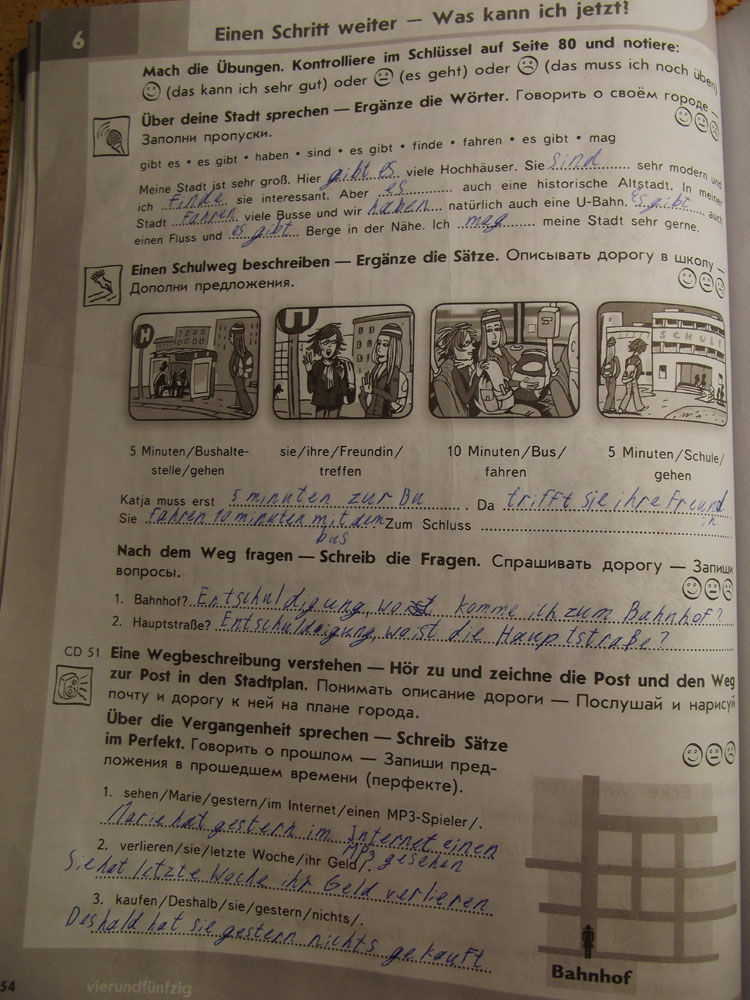 6 Einen Schritt weiter — Was kann ich jetzt?
Mach die Übungen. Kontrolliere im Schlüssel auf Seite 80 und notiere:
(das kann ich sehr gut) oder (es geht) oder (das muss ich noch üben)
Über deine Stadt sprechen — Ergänze die Wörter. Говорить о своём городе —
Заполни пропуски.
gibt es • es gibt • haben • sind • es gibt • finde • fahren • es gibt • mag
Meine Stadt ist sehr groß. Hier gibt es viele Hochhäuser. Sie sind sehr modern und
ich finde sie interessant. Aber es auch eine historische Altstadt. In meiner
Stadt fahren viele Busse und wir haben natürlich auch eine U-Bahn. Es gibt auch
einen Fluss und es gibt Berge in der Nähe. Ich mag meine Stadt sehr gerne.
Einen Schulweg beschreiben — Ergänze die Sätze. Описывать дорогу в школу —
Дополни предложения.
H
H
SCHULE
5 Minuten/Bushalte-
stelle/gehen
sie/ihre/Freundin/
treffen
10 Minuten/Bus/
fahren
5 Minuten/Schule/
gehen
Katja muss erst 5 minuten zur Bu. Da trifft sie ihre Freundin
Sie fahren 10 minuten mit dem bus Zum Schluss
Nach dem Weg fragen — Schreib die Fragen. Спрашивать дорогу — Запиши
вопросы.
1. Bahnhof? Entschuldigung, komme ich zum Bahnhof?
2. Hauptstraße? Entschuldigung, wo ist die Hauptstraße?
CD 51 Eine Wegbeschreibung verstehen — Hör zu und zeichne die Post und den Weg
zur Post in den Stadtplan. Понимать описание дороги — Послушай и нарисуй
почту и дорогу к ней на плане города.
Über die Vergangenheit sprechen — Schreib Sätze
im Perfekt. Говорить о прошлом — Запиши пред-
ложения в прошедшем времени (перфекте).
1. sehen/Marie/gestern/im Internet/einen MP3-Spieler/.
Marie hat gestern im Internet einen
MP3 gesehen
2. verlieren/sie/letzte Woche/ihr Geld/.
Sie hat letzte Woche ihr Geld verlieren
3. kaufen/Deshalb/sie/gestern/nichts/.
Deshald hat sie gestern nichts gekauft
Bahnhof
54 vierundfünfzig